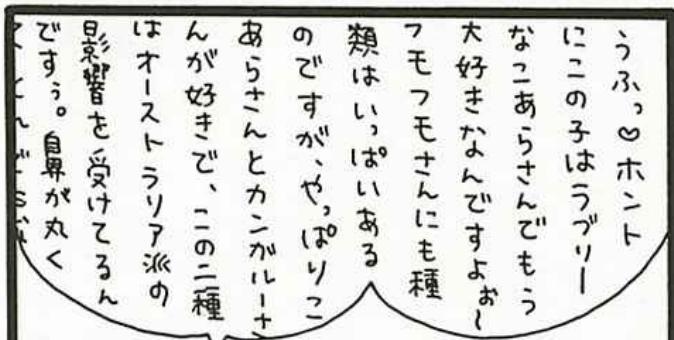 うふっ♡ホント
にこの子はラブリー
なこあらさんでもう
大好きなんですよぉ〜
フモフモさんにも種
類はいっぱいある
のですが、やっぱりこ
あらさんとカンガルーさ
んが好きで、この二種
はオーストラリア派の
影響を受けてるん
ですぅ。鼻が丸く